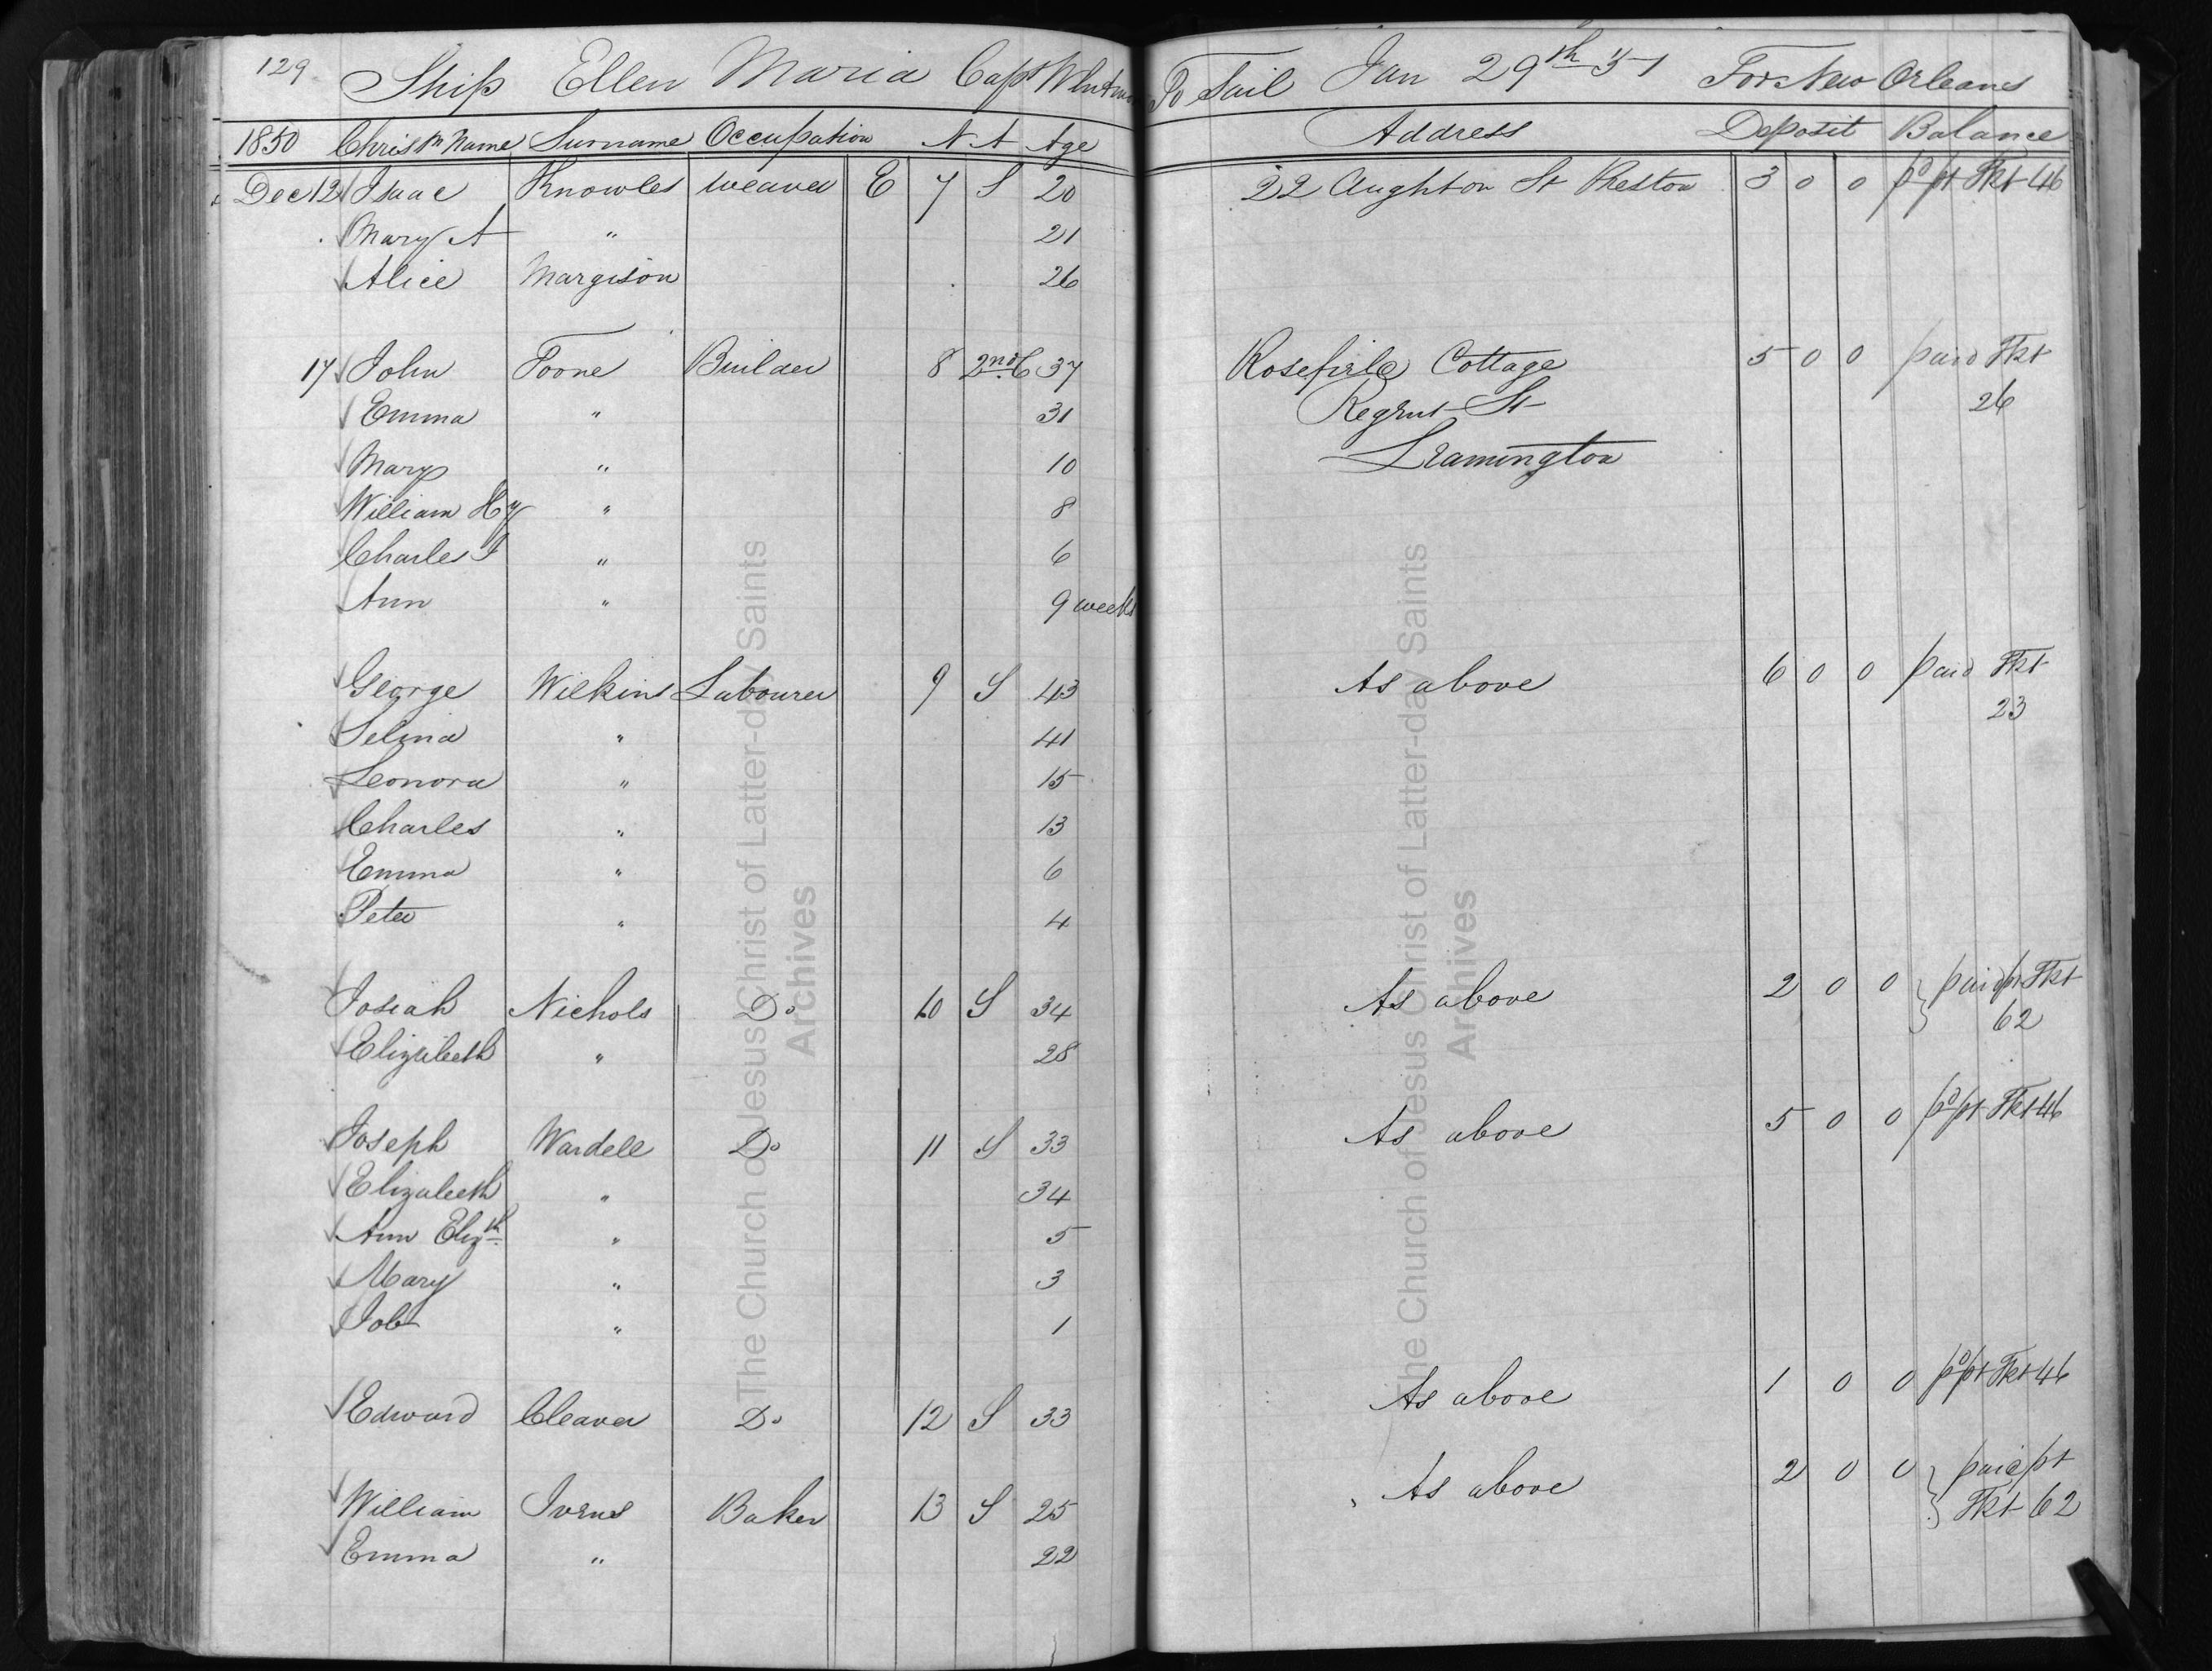 129 Ship Ellen Maria Capt Whitmore To Sail Jan 29th 51 For New Orleans
1850 Christn Name Surname Occupation N A Age Address Deposit Balance
Dec 12 Isaac Knowles weaver E 7 S 20 22 Aughton St Preston 3 0 0 pd pt Tkt 46
Mary A " 21
Alice Margison 26
17 John Toone Builder 8 2nd C 37 Cottage 5 0 0 paid Tkt
Emma " 31 Regent St 26
Mary " 10 Leamington
William Hy " 8
Charles I " 6
Ann " 9 weeks
George Wilkins Labourer 9 S 43 As above 6 0 0 paid Tkt
Selina " 41 23
Leonora " 15
Charles " 13
Emma " 6
Peter " 4
Josiah Nichols Do 10 S 34 As above 2 0 0 paid pt Tkt
Elizabeth " 28 62
Joseph Wardell Do 11 S 33 As above 5 0 0 pd pt Tkt 46
Elizabeth " 34
Ann Elizth " 5
Mary " 3
Job " 1
Edward Cleaver Do 12 S 33 As above 1 0 0 pd pt Tkt 46
William Ivens Baker 13 S 25 As above 2 0 0 paid pt
Emma " 22 Tkt 62
The Church of Jesus Christ of Latter-day Saints
Archives
The Church of Jesus Christ of Latter-day Saints
Archives